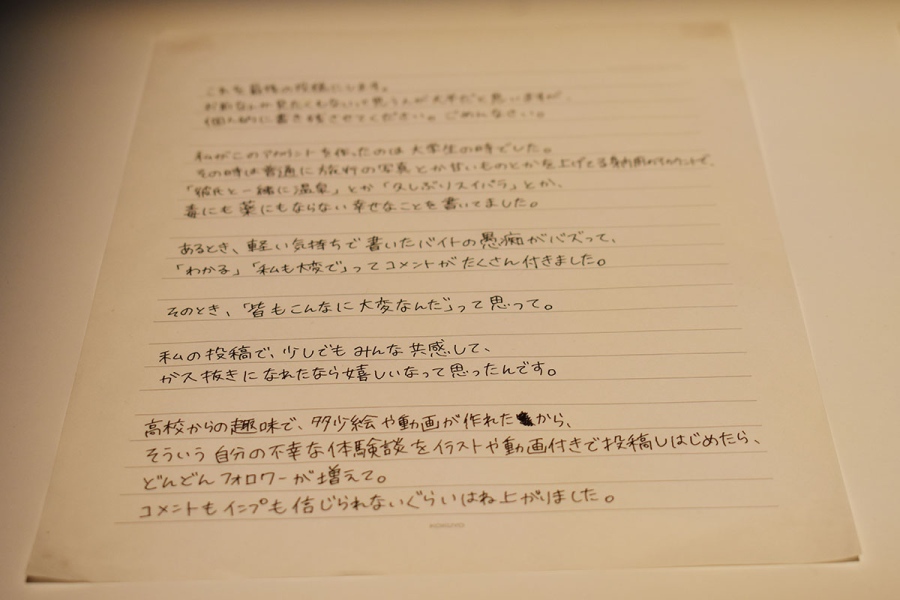 これを最後の投稿にします。
お前なんか見たくもないって思う人が大半だと思いますが、
個人的に書き残させてください。ごめんなさい。
私がこのアカウントを作ったのは大学生の時でした。
その時は普通に旅行の写真とか甘いものとかを上げてる身内用アカウントで、
「彼氏と一緒に温泉」とか「久しぶりスイパラ」とか、
毒にも薬にもならない幸せなことを書いてました。
あるとき、軽い気持ちで書いたバイトの愚痴がバズって、
「わかる」「私も大変で」ってコメントがたくさん付きました。
そのとき、「皆もこんなに大変なんだ」って思って。
私の投稿で、少しでもみんな共感して、
ガス抜きになれたなら嬉しいなって思ったんです。
高校からの趣味で、多少絵や動画が作れたから、
そういう自分の不幸な体験談をイラストや動画付きで投稿しはじめたら、
どんどんフォロワーが増えて。
コメントもインプも信じられないぐらいはね上がりました。
KOKUYO